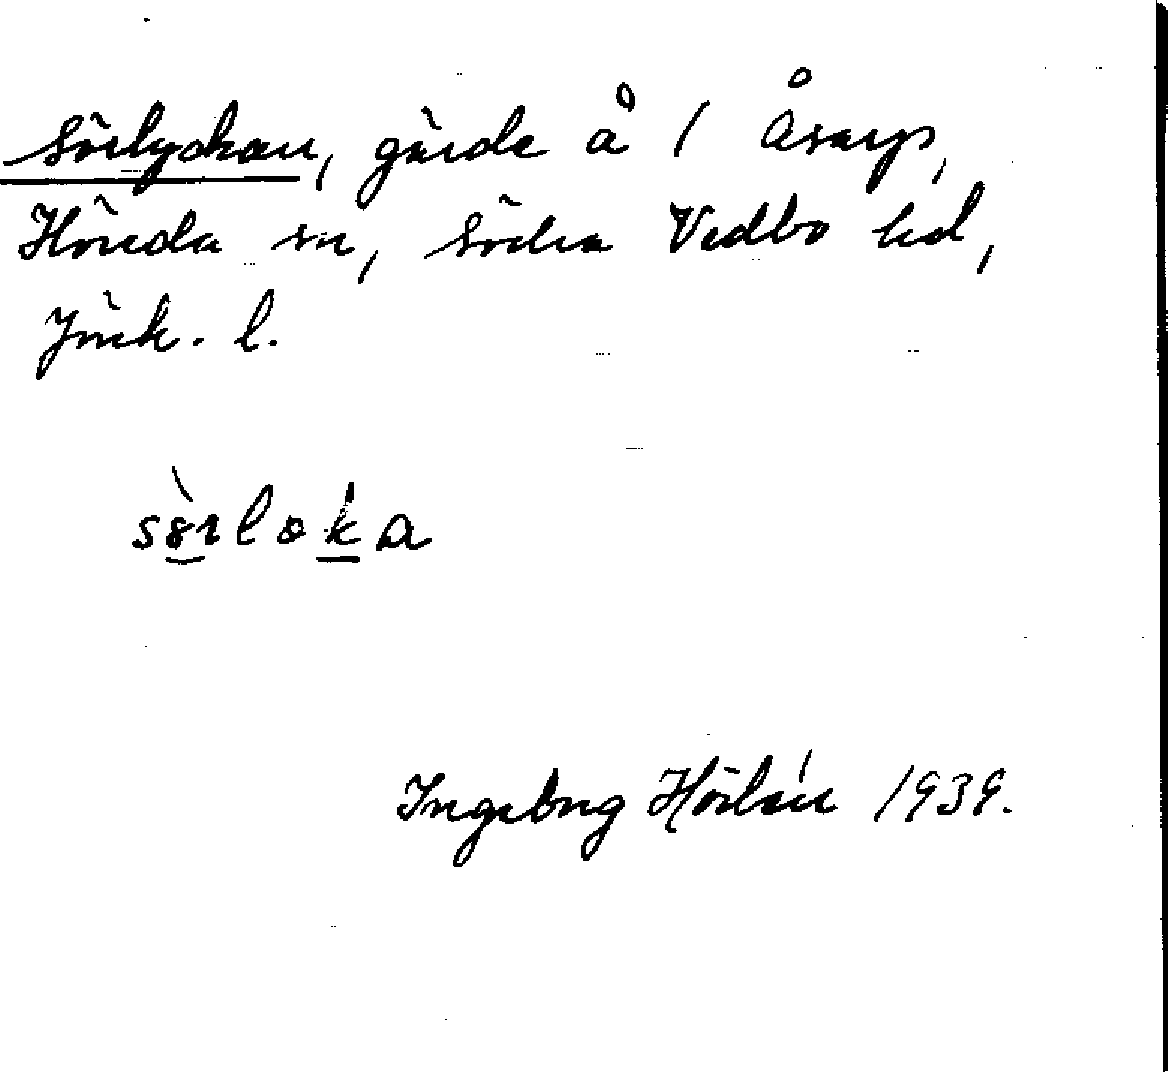 Sörlyckan, gärde å 1 Åsarp,
Höreda sn, Södra Vedbo hd,
Jönk. l.
sörloka
Ingeborg Hörlén 1939.